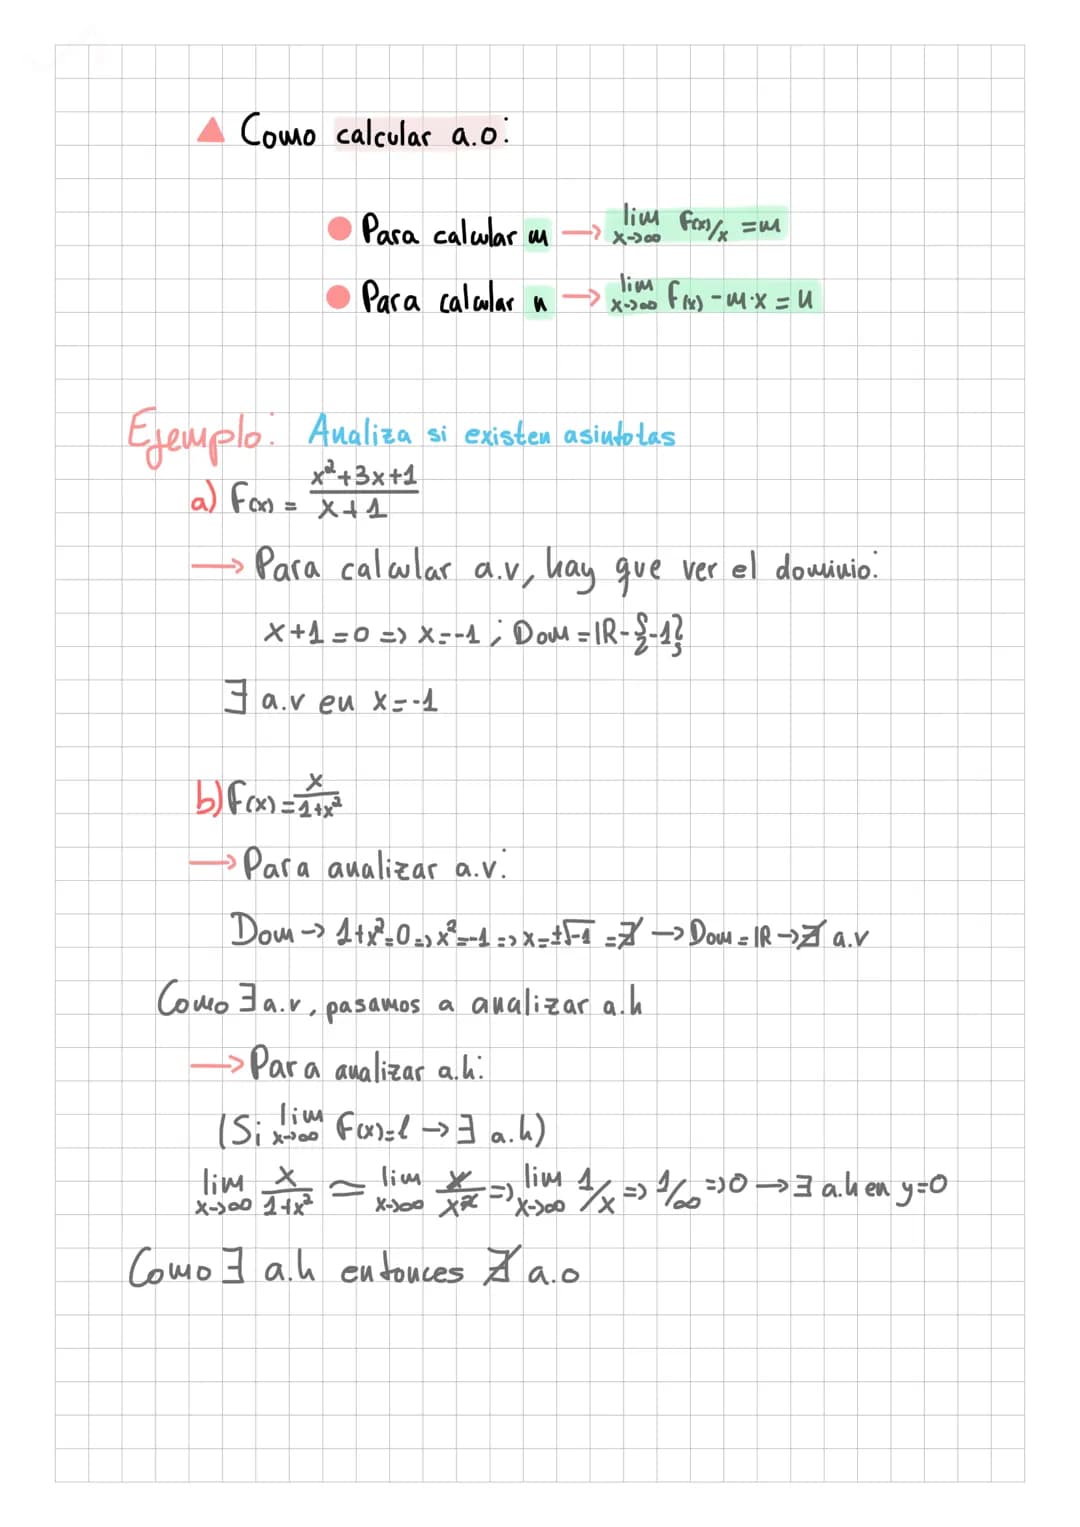 Como calcular a.o:
Para calcular m → lim x→∞ F(x)/x = m
Para calcular n → lim x→∞ f(x) - m·x = n
Ejemplo: Analiza si existen asintotas
a) F(x) = x²+3x+1 / x+1
→ Para calcular a.v, hay que ver el dominio:
x+1=0 => x=-1 ; Dom = IR-{-1}
∃ a.v en x=-1
b) F(x) = x / 1+x²
→ Para analizar a.v:
Dom → 1+x²=0 => x²=-1 => x=±√-1 = ∄ → Dom = IR → ∄ a.v
Como ∃ a.v, pasamos a analizar a.h
→ Para analizar a.h:
(Si lim x→∞ F(x)=l → ∃ a.h)
lim x→∞ x / 1+x² ≃ lim x→∞ x / x² => lim x→∞ 1/x => 1/∞ => 0 → ∃ a.h en y=0
Como ∃ a.h entonces ∄ a.o